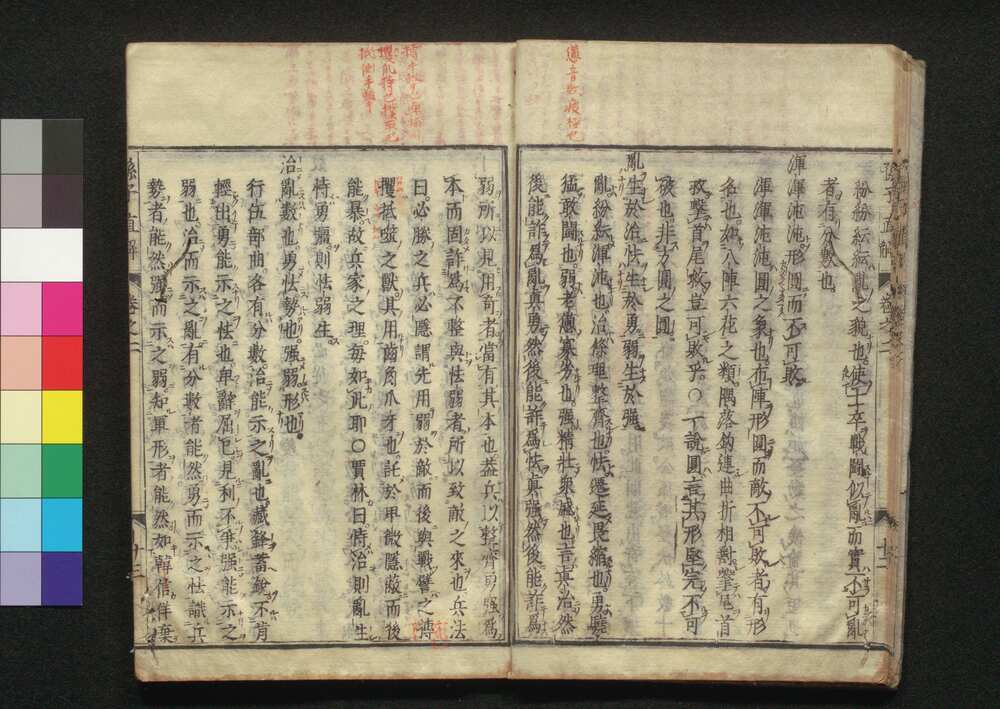 紛紛紜紜亂之貌也使士卒戰鬪似亂而實不可亂
者有分數也
渾渾沌沌形圓而不可敗
渾渾沌沌圓之象也布陣形圓而敵不可敗者有形
名也如八陣六花之類隅落鈎連曲折相對擊尾首
救擊首尾救豈可敗乎○一說圓言其形堅完不可
破也非方圓之圓
亂生於治怯生於勇弱生於強
亂紛紜渾沌也治條理整齊也怯遷延畏縮也勇驍
猛敢鬪也弱老憊寡劣也强精壯衆盛也言真治然
後能詐爲亂真勇然後能詐爲怯真强然後能詐爲
弱所以見用奇者當有其本也蓋兵以整齊勇强爲
本而固詐爲不整與怯弱者所以致敵之來也兵法
曰必勝之兵必隱謂先用弱於敵而後與戰譬之搏
攫抵噬之獸其用齒角爪牙也託於卑微隱蔽而後
能暴故兵家之理每如此耶○賈林曰恃治則亂生
恃勇彊則怯弱生
治亂數也勇怯勢也强弱形也
行伍部曲各有分數治能示之亂也藏鋒蓄銳不肯
輕出勇能示之怯也卑辭屈己見利不爭强能示之
弱也治而示之亂有分數者能然勇而示之怯識兵
勢者能然强而示之弱知軍形者能然如韓信佯棄
孫子直解 卷之二 十三